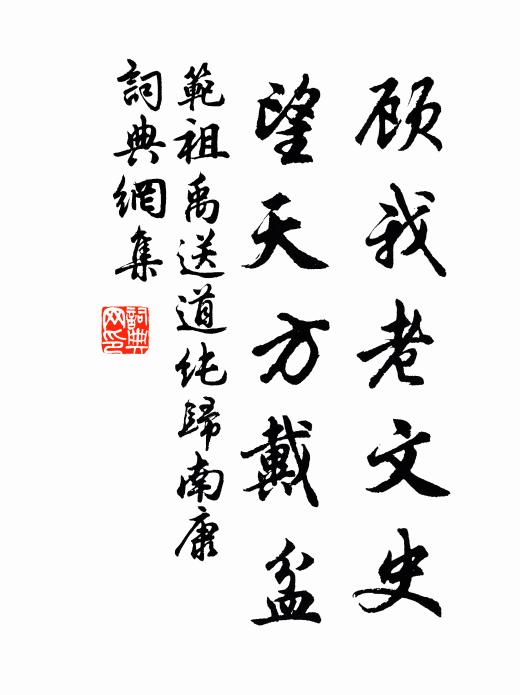 顾我老文史
望天方戴盆
範祖禹送道纯歸南康
詞典網集
詞典网印